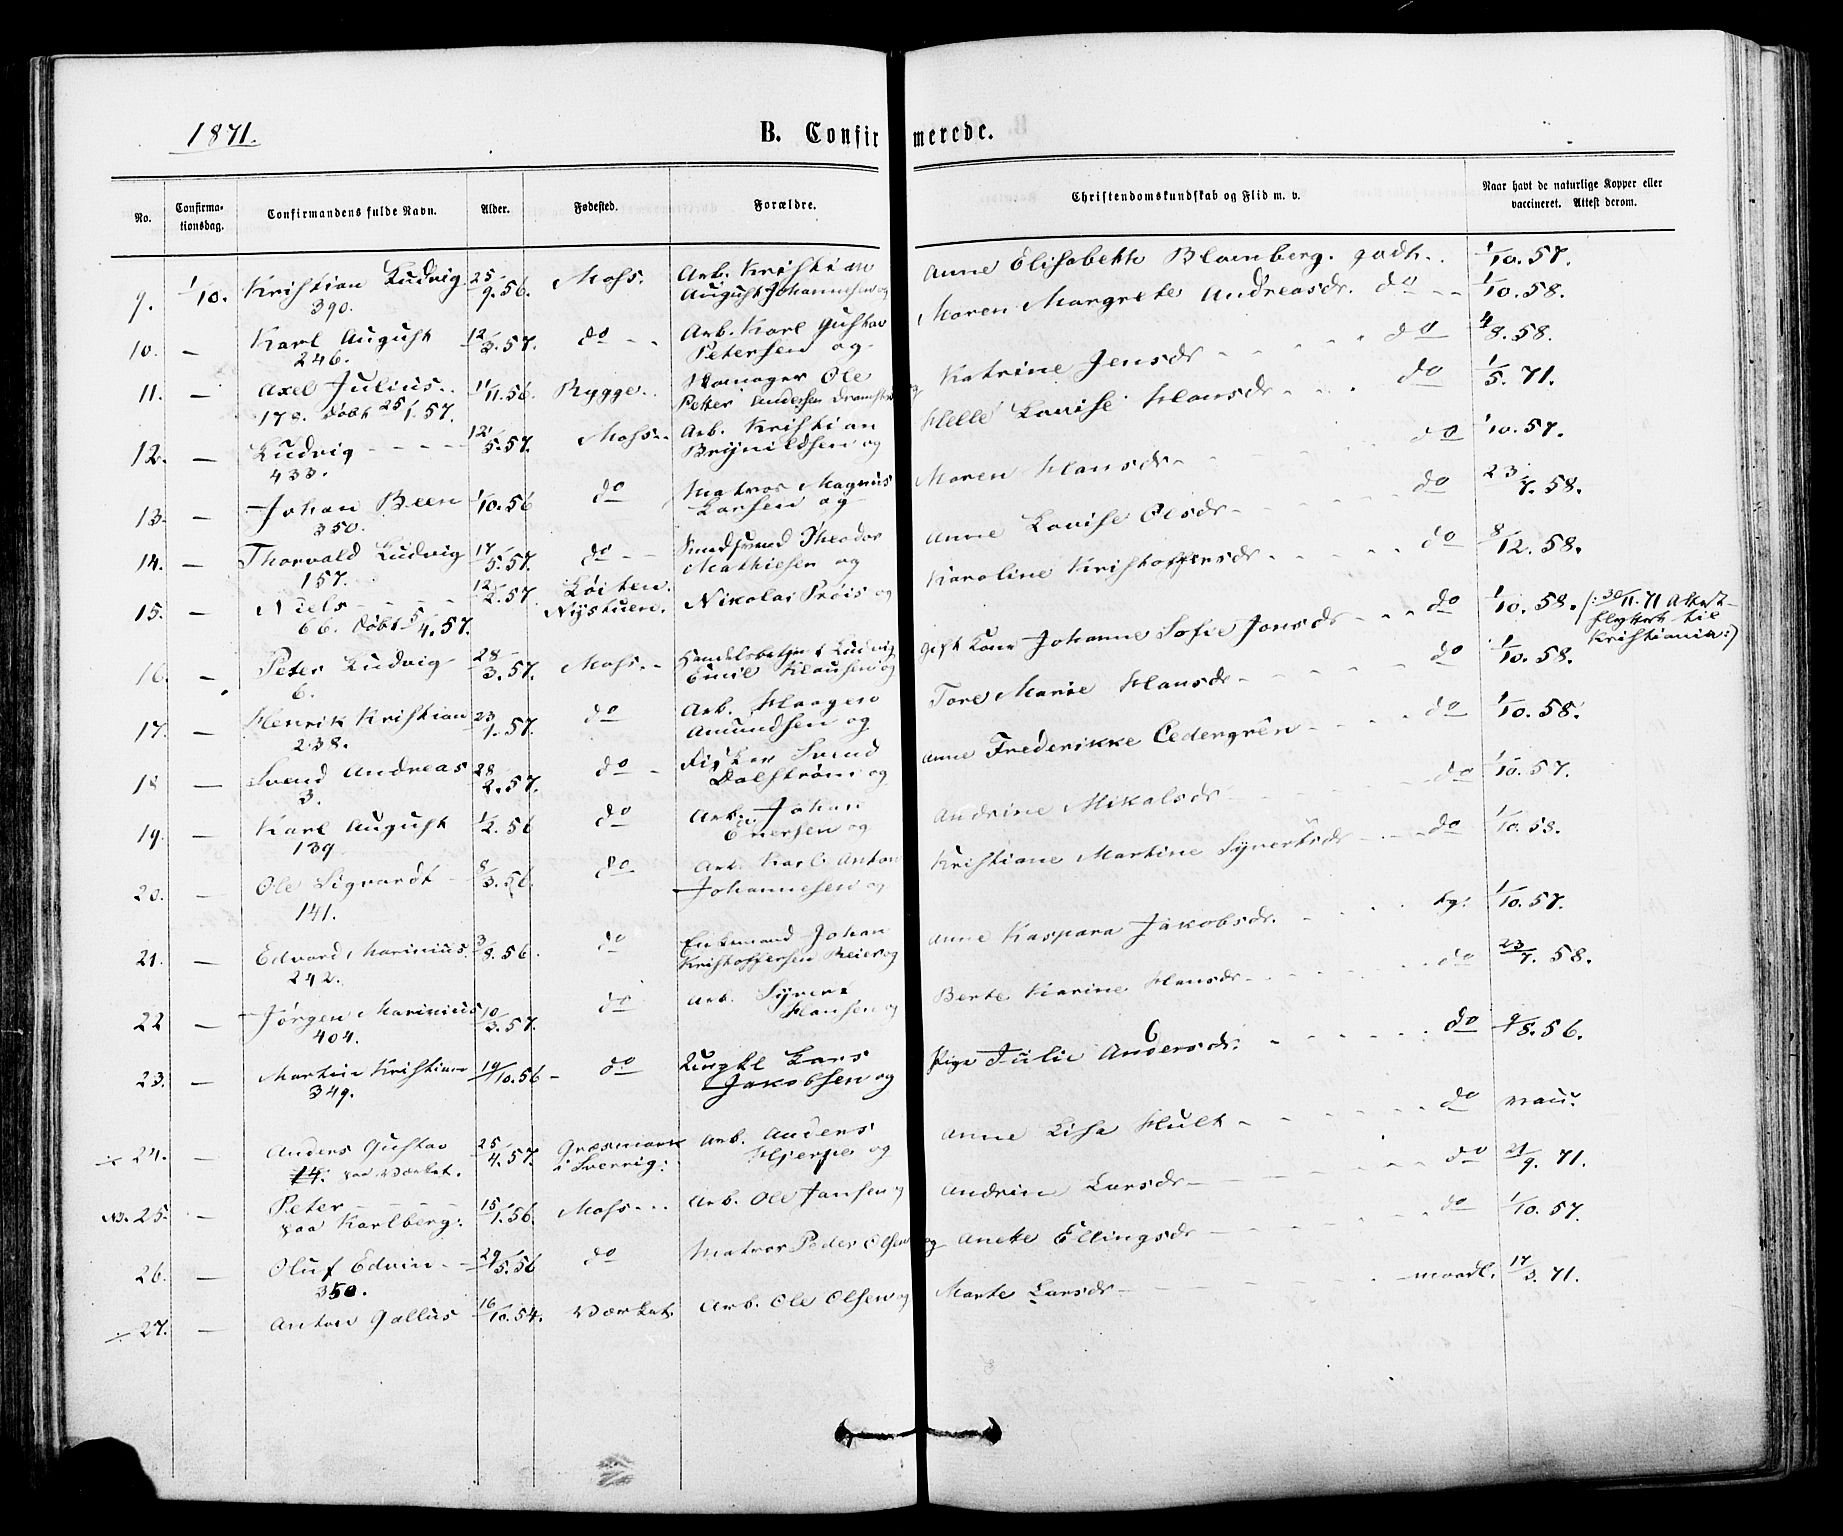 1871.
B. Confirmerede.
No. Confirmationsdag. Confirmandens fulde Navn. Alder. Fødested. Forældre. Christendomskundskab og Flid m. v. Naar havt de naturlige Kopper eller vaccineret. Attest derom.
9. 1/10. Kristian Ludvig 25/9.56. Moss. Arb. Kristian Anne Elisabeth Blomberg. godt. 1/10.57.
390. August Johannesen og
10. — Karl August 12/3.57. do Arb. Karl Gustav Maren Margrete Andreasdr. do 1/10.58.
246. Petersen og
11. — Axel Julius. 11/11.56. Rygge. Ole Katrine Jensdr do 4/8.58.
178. døbt 25/1.57. Petter Andersen og
12. — Ludvig 12/5.57. Moss. Arb. Kristian Helle Lovise Hansdr do 1/5.71.
433. Brynildsen og
13. — Johan Been 1/10.56 do Matros Magnus Maren Hansdr do 1/10.57.
350. Larsen og
14. — Thorvald Ludvig 17/5.57. do Theodor Anne Lovise Olsdr do 23/7.58.
157. Mathiesen og
15. — Niels 12/2.57 Løiten. Nikolai Prøis og Karoline Kristoffersdr do 8/12.58.
66. døbt 5/4.57. Nystuen.
16. — Peter Ludvig 28/3.57. Moss. Ludvig gift Kone Johanne Sofie Jonsdr do 1/10.58. (: 30/11.71 Attest
6. Emil Klausen og flyttet til
Kristiania:)
17. — Henrik Kristian 23/1.57. do Arb. Haagen Tore Marie Hansdr do 1/10.58.
238. Amundsen og
18 — Svend Andreas 28/2.57. do Fisker Svend Anne Frederikke Cedergrên do 1/10.58.
3. Dalstrøm og
19. — Karl August 1/2.56 do Arb. Johan Andrine Mikalsdr do 1/10.57.
139 Enersen og
20. — Ole Sigvardt 8/3.56. do Arb. Karl Anton Kristiane Martine Syvertsdr do 1/10.58.
141. Johannesen og
21. — Edvard Marinius. 3/8.56. do Enkemand Johan Anne Kaspara Jakobsdr. tg. 1/10.57.
242. Kristoffersen Reier og
22 — Jørgen Marinius 10/3.57. do Arb. Syvert Berte Karine Hansdr do 23/7.58.
404. Hansen og
23. — Martin Kristian 19/10.56 do Ungkl Lars Pige Julie Andersdr. do 9/5.56.
349. Jakobsen og
÷ 24. — Anders Gustav 25/4.57. Græsmark Arb. Anders Anne Lisa Hult do vacc.
14. paa Værket. i Sverrig: Hjerpe og
NB. 25. — Peter 15/1.56. Moss. Arb. Ole Jansen og Andrine Larsdr do 21/9.71.
paa Karlberg:
26. — Oluf Edvin 29/5.56 do Matros Peder Olsen og Anete Ellingsdr do 1/10.57.
350.
÷ 27. — Anton Gallus 16/10.54. Værket. Arb. Ole Olsen og Marte Larsdr maadl. 17/3.71.